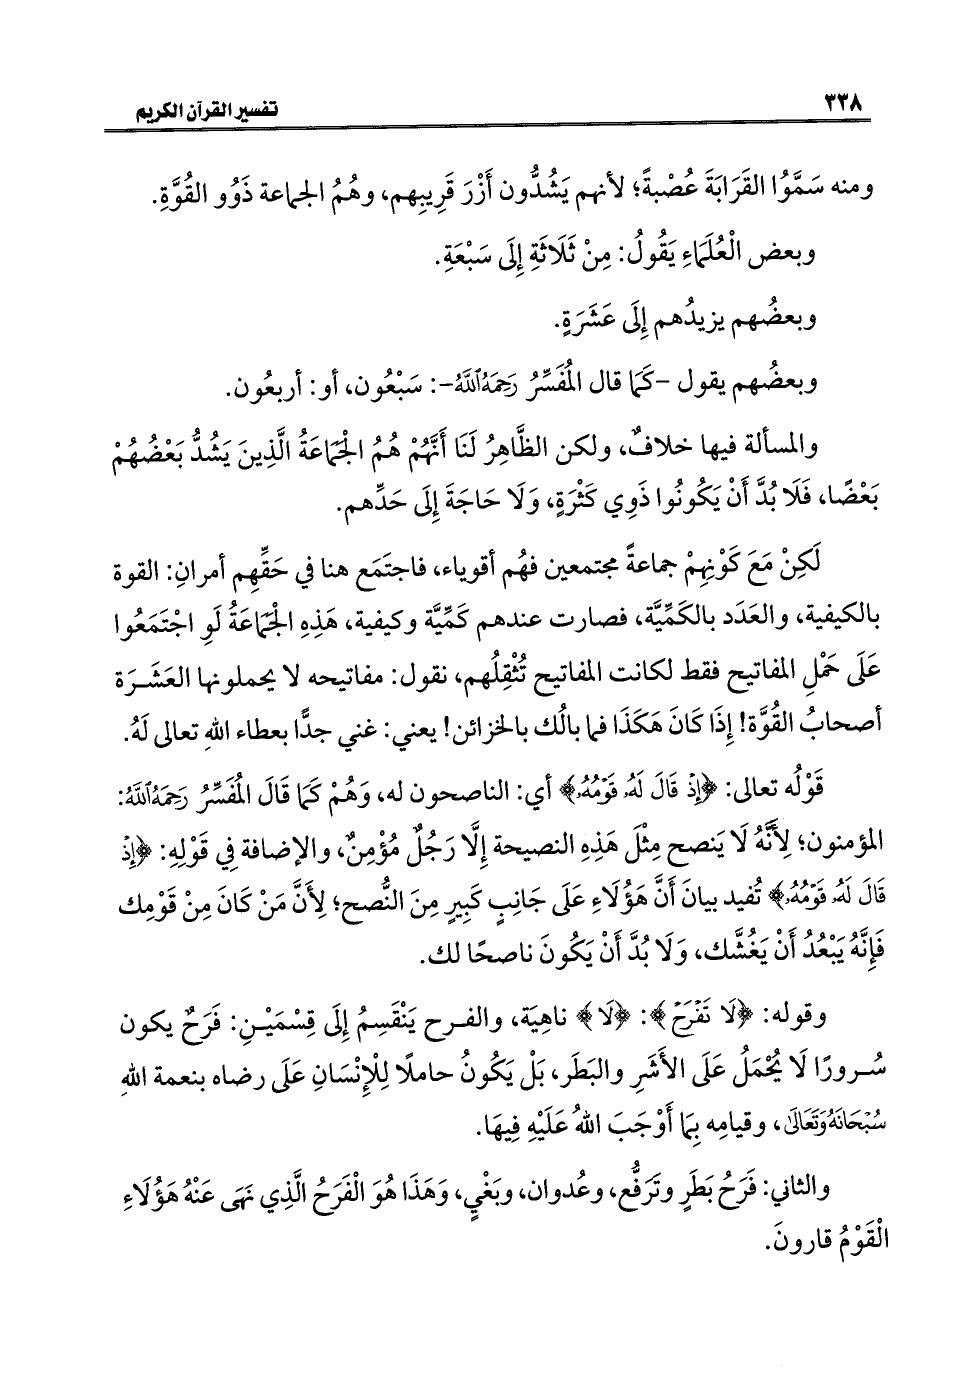 ٣٣٨
تفسير القرآن الكريم
ومنه سَمَّوُا القَرَابَةَ عُصْبةً؛ لأنهم يَشُدُّون أَزْرَ قَرِيبِهم، وهُمُ الجماعة ذَوُو القُوَّةِ.
وبعض الْعُلَمَاءِ يَقُولُ: مِنْ ثَلَاثَةِ إِلَى سَبْعَةِ.
وبعضُهم يزيدُهم إِلَى عَشَرَةٍ.
وبعضُهم يقول -كَمَا قال المُفَسِّرُ رَحِمَهُ اللَّهُ-: سَبْعُون، أو: أربعُون.
والمسألة فيها خلافٌ، ولكن الظَّاهِرُ لَنَا أَنَّهُمْ هُمُ الْجَمَاعَةُ الَّذِينَ يَشُدُّ بَعْضُهُمْ
بَعْضًا، فَلَا بُدَّ أَنْ يَكُونُوا ذَوِي كَثْرَةٍ، وَلَا حَاجَةَ إِلَى حَدِّهم.
لَكِنْ مَعَ كَوْنِهِمْ جماعةً مجتمعين فهُم أقوياء، فاجتَمَع هنا في حَقِّهِم أمرانِ: القوة
بالكيفية، والعَدَد بالكَمِّيَّة، فصارت عندهم كَمِّيَّة وكيفية، هَذِهِ الجَمَاعَةُ لَوِ اجْتَمَعُوا
عَلَى حَمْلِ المفاتيح فقط لكانت المفاتيح تُثْقِلُهم، نقول: مفاتيحه لا يحملونها العَشَرَة
أصحابُ القُوَّة! إِذَا كَانَ هَكَذَا فما بالُك بالخزائن! يعني: غني جدًّا بعطاء اللهِ تعالى لَهُ.
قَوْلُه تعالى: ﴿إِذْ قَالَ لَهُۥ قَوْمُهُۥ﴾ أي: الناصحون له، وَهُمْ كَمَا قَالَ المُفَسِّرُ رَحِمَهُ اللَّهُ:
المؤمنون؛ لِأَنَّهُ لَا يَنصح مِثْلَ هَذِهِ النصيحة إِلَّا رَجُلٌ مُؤْمِنٌ، والإضافة فِي قَوْلِهِ: ﴿إِذْ
قَالَ لَهُۥ قَوْمُهُۥ﴾ تُفيد بيانَ أَنَّ هَؤُلَاءِ عَلَى جَانِبٍ كَبِيرٍ مِنَ النُّصح؛ لِأَنَّ مَنْ كَانَ مِنْ قَوْمِك
فَإِنَّهُ يَبْعُدُ أَنْ يَغُشَّك، وَلَا بُدَّ أَنْ يَكُونَ ناصحًا لك.
وقوله: ﴿لَا تَفْرَحْ﴾: ﴿لَا﴾ ناهِيَة، والفرح يَنْقَسِمُ إِلَى قِسْمَيْنِ: فَرَحٌ يكون
سُرورًا لَا يُحْمَلُ عَلَى الأَشَرِ والبَطَر، بَلْ يَكُونُ حاملًا لِلْإِنْسَانِ عَلَى رضاه بنعمة اللهِ
سُبْحَانَهُ وَتَعَالَى، وقيامِه بِمَا أَوْجَبَ اللهُ عَلَيْهِ فِيهَا.
والثاني: فَرَحُ بَطَرٍ وتَرَفُّع، وعُدوان، وبَغْيٍ، وَهَذَا هُوَ الْفَرَحُ الَّذِي نَهَى عَنْهُ هَؤُلَاءِ
الْقَوْمُ قارونَ.